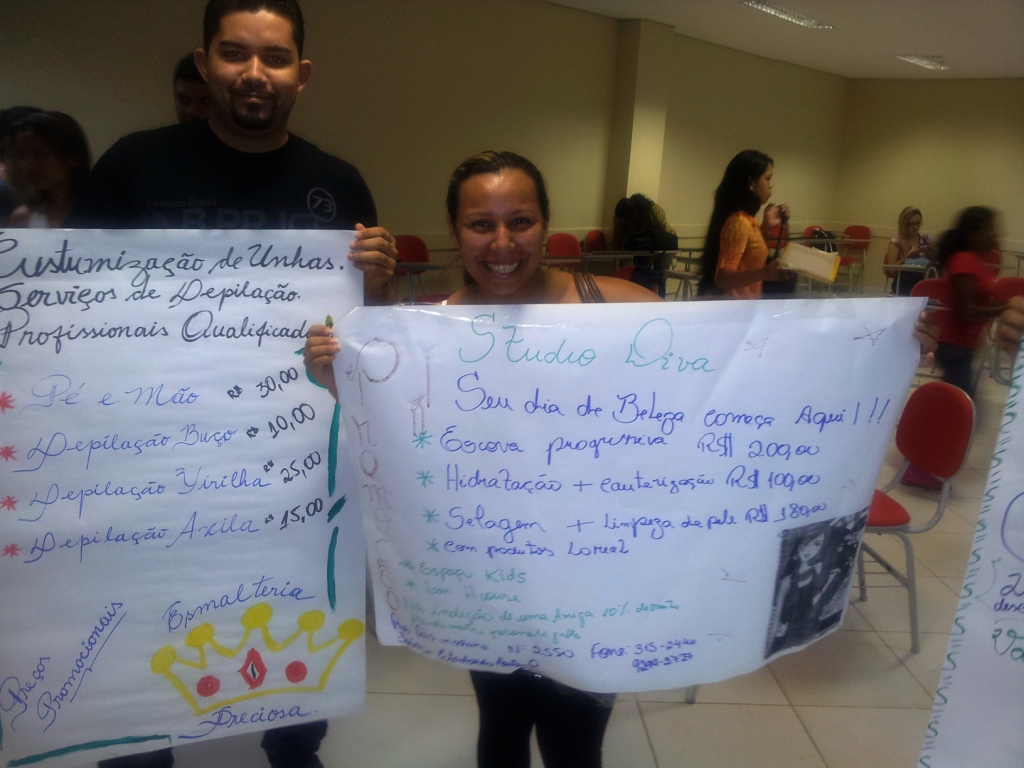 Custumização de Unhas.
Serviços de Depilação.
Profissionais Qualificad
* Pé e Mão R$ 30,00
* Depilação Buço R$ 10,00
* Depilação Virilha R$ 25,00
* Depilação Axila R$ 15,00
Preços
Promocionais
Esmalteria
Preciosa.
Studio Diva
Seu dia de Beleza começa Aqui!!!
* Escova progressiva R$ 200,00
* Hidratação + cauterização R$ 100,00
* Selagem + Limpeza de pele R$ 180,00
* com produtos Loreal
* Espaço Kids
* Com
Na indicação de uma Amiga 10% desconto
Nº 2550 Fone: 315-24